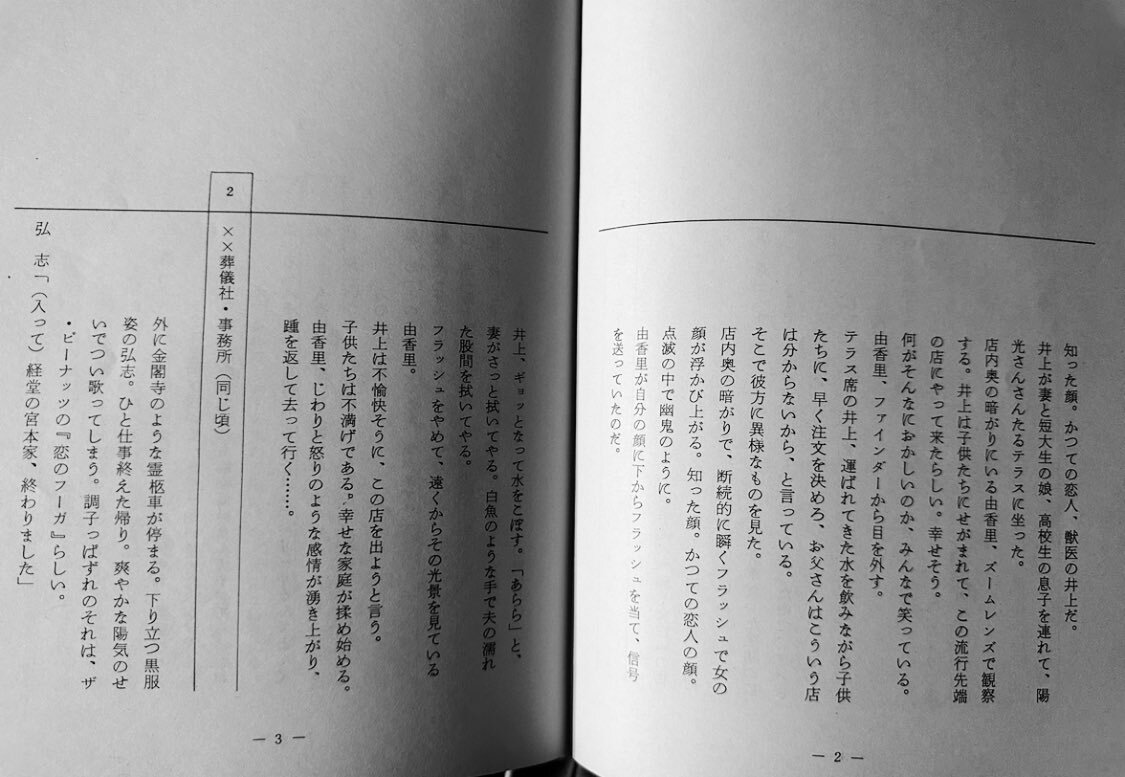 知った顔。かつての恋人、獣医の井上だ。
井上が妻と短大生の娘、高校生の息子を連れて、陽
光さんさんたるテラスに坐った。
店内奥の暗がりにいる由香里、ズームレンズで観察
する。井上は子供たちにせがまれて、この流行先端
の店にやって来たらしい。幸せそう。
何がそんなにおかしいのか、みんなで笑っている。
由香里、ファインダーから目を外す。
テラス席の井上、運ばれてきた水を飲みながら子供
たちに、早く注文を決めろ、お父さんはこういう店
は分からないから、と言っている。
そこで彼方に異様なものを見た。
店内奥の暗がりで、断続的に瞬くフラッシュで女の
顔が浮かび上がる。知った顔。かつての恋人の顔。
点滅の中で幽鬼のように。
由香里が自分の顔に下からフラッシュを当て、信号
を送っていたのだ。
— 2 —
井上、ギョッとなって水をこぼす。「あらら」と、
妻がさっと拭いてやる。白魚のような手で夫の濡れ
た股間を拭いてやる。
フラッシュをやめて、遠くからその光景を見ている
由香里。
井上は不愉快そうに、この店を出ようと言う。
子供たちは不満げである。幸せな家庭が揉め始める。
由香里、じわりと怒りのような感情が湧き上がり、
踵を返して去って行く………。
2 ××葬儀社・事務所(同じ頃)
外に金閣寺のような霊柩車が停まる。下り立つ黒服
姿の弘志。ひと仕事終えた帰り。爽やかな陽気のせ
いでつい歌ってしまう。調子っぱずれのそれは、ザ
・ピーナッツの『恋のフーガ』らしい。
弘 志「(入って)経堂の宮本家、終わりました」
— 3 —